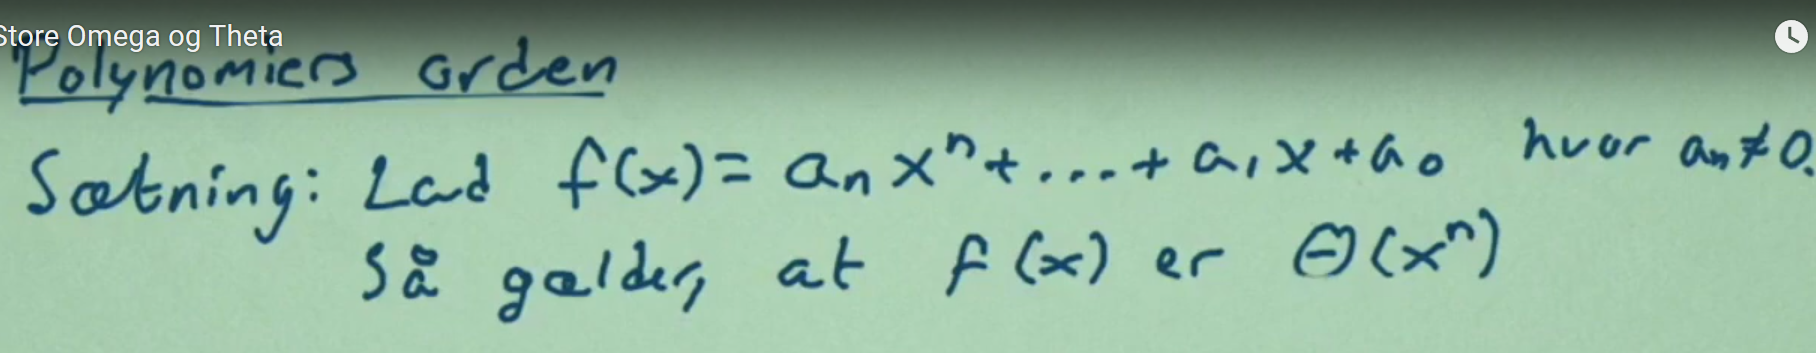 Store Omega og Theta
Polynomiers orden
Sætning: Lad f(x) = aₙxⁿ + ... + a₁x + a₀ hvor aₙ ≠ 0.
Så gælder, at f(x) er Θ(xⁿ)